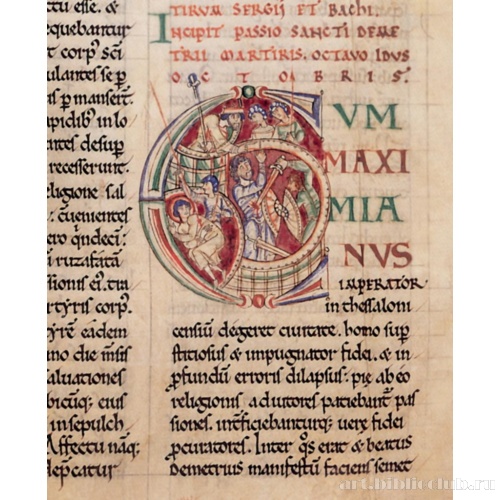 ctu esse. &
quebantur
t corp͛ sc̄i
ulantes se p
is p manser̄t.
apidib; in lo
antes desup
recesserunt.
ligione sal
t. c̄uenientes
ero q̄ndeci
ti ruzafata
sionis ei; t̄ia
rtyris corp͛.
yrē eadem
no die m̄sis
aluationes
bicūq; eius
in sepulch
Affectu nāq;
depcatur
TIRVM SERGII ET BACHI.
INCIPIT PASSIO SANCTI DEME
TRII MARTIRIS. OCTAVO IDVS
OCTOBRIS.
CVM
MAXI
MIA
NVS
IMPERATOR
in thessaloni
censiū degeret ciuitate. homo sup
stitiosus & impugnator fidei. & in
pfundū erroris dilapsus: pię ab eo
religionis adiutores patiebant͛ pas
siones. int͛ficiebanturq; uerę fidei
pcuratores. Inter q̊s erat & beatus
demetrius manifestū faciens semet
art.biblioclub.ru